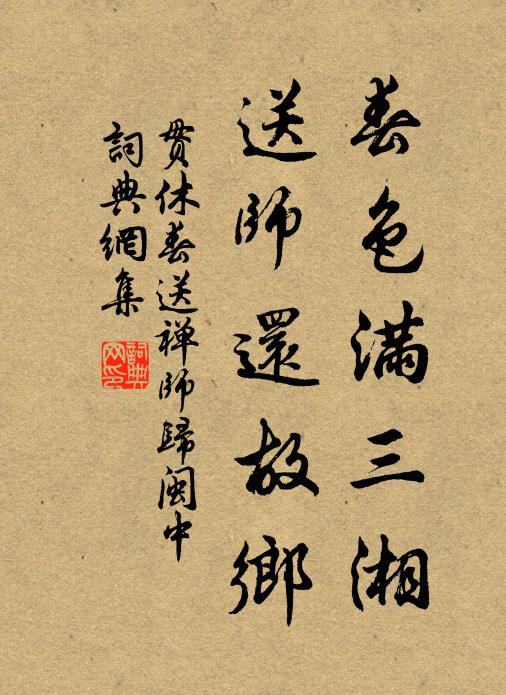 春色滿三湘
送師還故鄉
貫休春送禅師歸閩中
詞典網集
詞典
网印